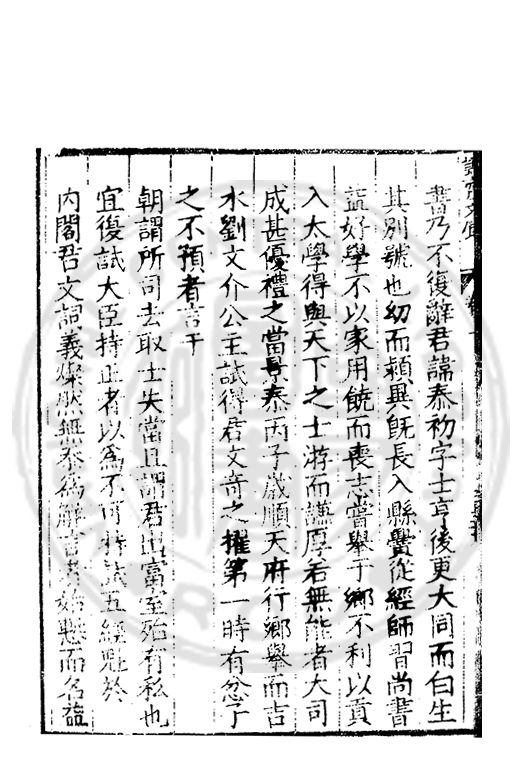 書乃不復辭君諱泰初字士亨後更大同而白生
其別號也幼而穎異既長入縣黌從經師習尚書
益好學不以家用饒而喪志嘗舉于鄉不利以貢
入太學得與天下之士游而謙厚若無能者大司
成甚優禮之當景泰丙子歲順天府行鄉舉而吉
水劉文介公主試得君文奇之擢第一時有忿子
之不預者言于
朝謂所司去取士失當且謂君出富室殆有私也
宜復試大臣持正者以為不可持試五經魁於
內閣君文詞義燦然無忝為解首者始慙而名益